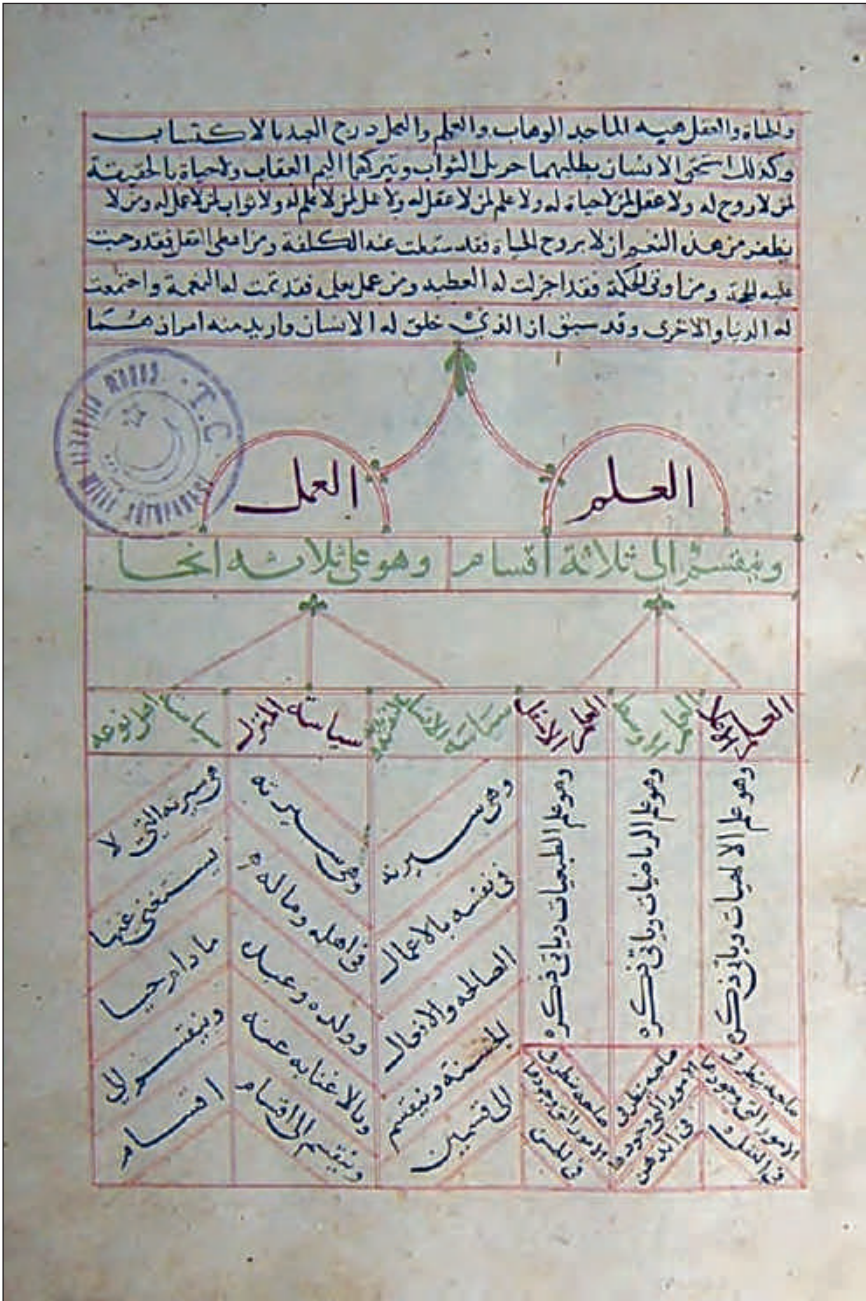 والحياة والعقل هبة الماجد الوهاب والعلم والعمل درج العبد بالاكتساب
وكذلك استحق الانسان بطلبهما جزيل الثواب وبتركهما اليم العقاب ولاحياة بالحقيقة
لمن لاروح له ولا عقل لمن لاحياة له ولا علم لمن لا عقل له ولا عمل لمن لا علم له ولا ثواب لمن لا عمل له ومن لا
يظفر من هذه النعم ان لا بروح الحياة فقد سقطت عنه الكلفة ومن اعطى العقل فقد وجبت
عليه الحجة ومن اوتى الحكمة فقد اجزلت له العطية ومن عمل بعلم فقد تمت له النعمة واجتمعت
له الدنيا والاخرى وقد سبق ان الذي خلق له الانسان واريد منه امران هما
العلم
العمل
وينقسم الى ثلاثة اقسام
وهو على ثلاثه انحا
العلم الاعلا
العلم الاوسط
العلم الاسفل
سياسة الانسان
سياسة المنزل
سياسة اهل نوعه
وهو علم الالهيات وياتى ذكره
وهو علم الرياضيات وياتى ذكره
وهو علم الطبيعيات وياتى ذكره
صاحبه ينظر فى
الامور التى وجودها
فى العقل و
صاحبه ينظر فى
الامور التى وجودها
فى الذهن
صاحبه ينظر فى
الامور التى وجودها
فى الحس
وهى سيرته
فى نفسه بالاعمال
الصالحه والافعال
الحسنة وينقسم
الى قسمين
وهى سيرته
فى اهله وماله
وولده وعبده
ومالا غنابه عنه
وينقسم الى اقسام
وسيرته التى لا
يستغنى عنها
مادام حيا
وينقسم الى
اقسام
T.C.